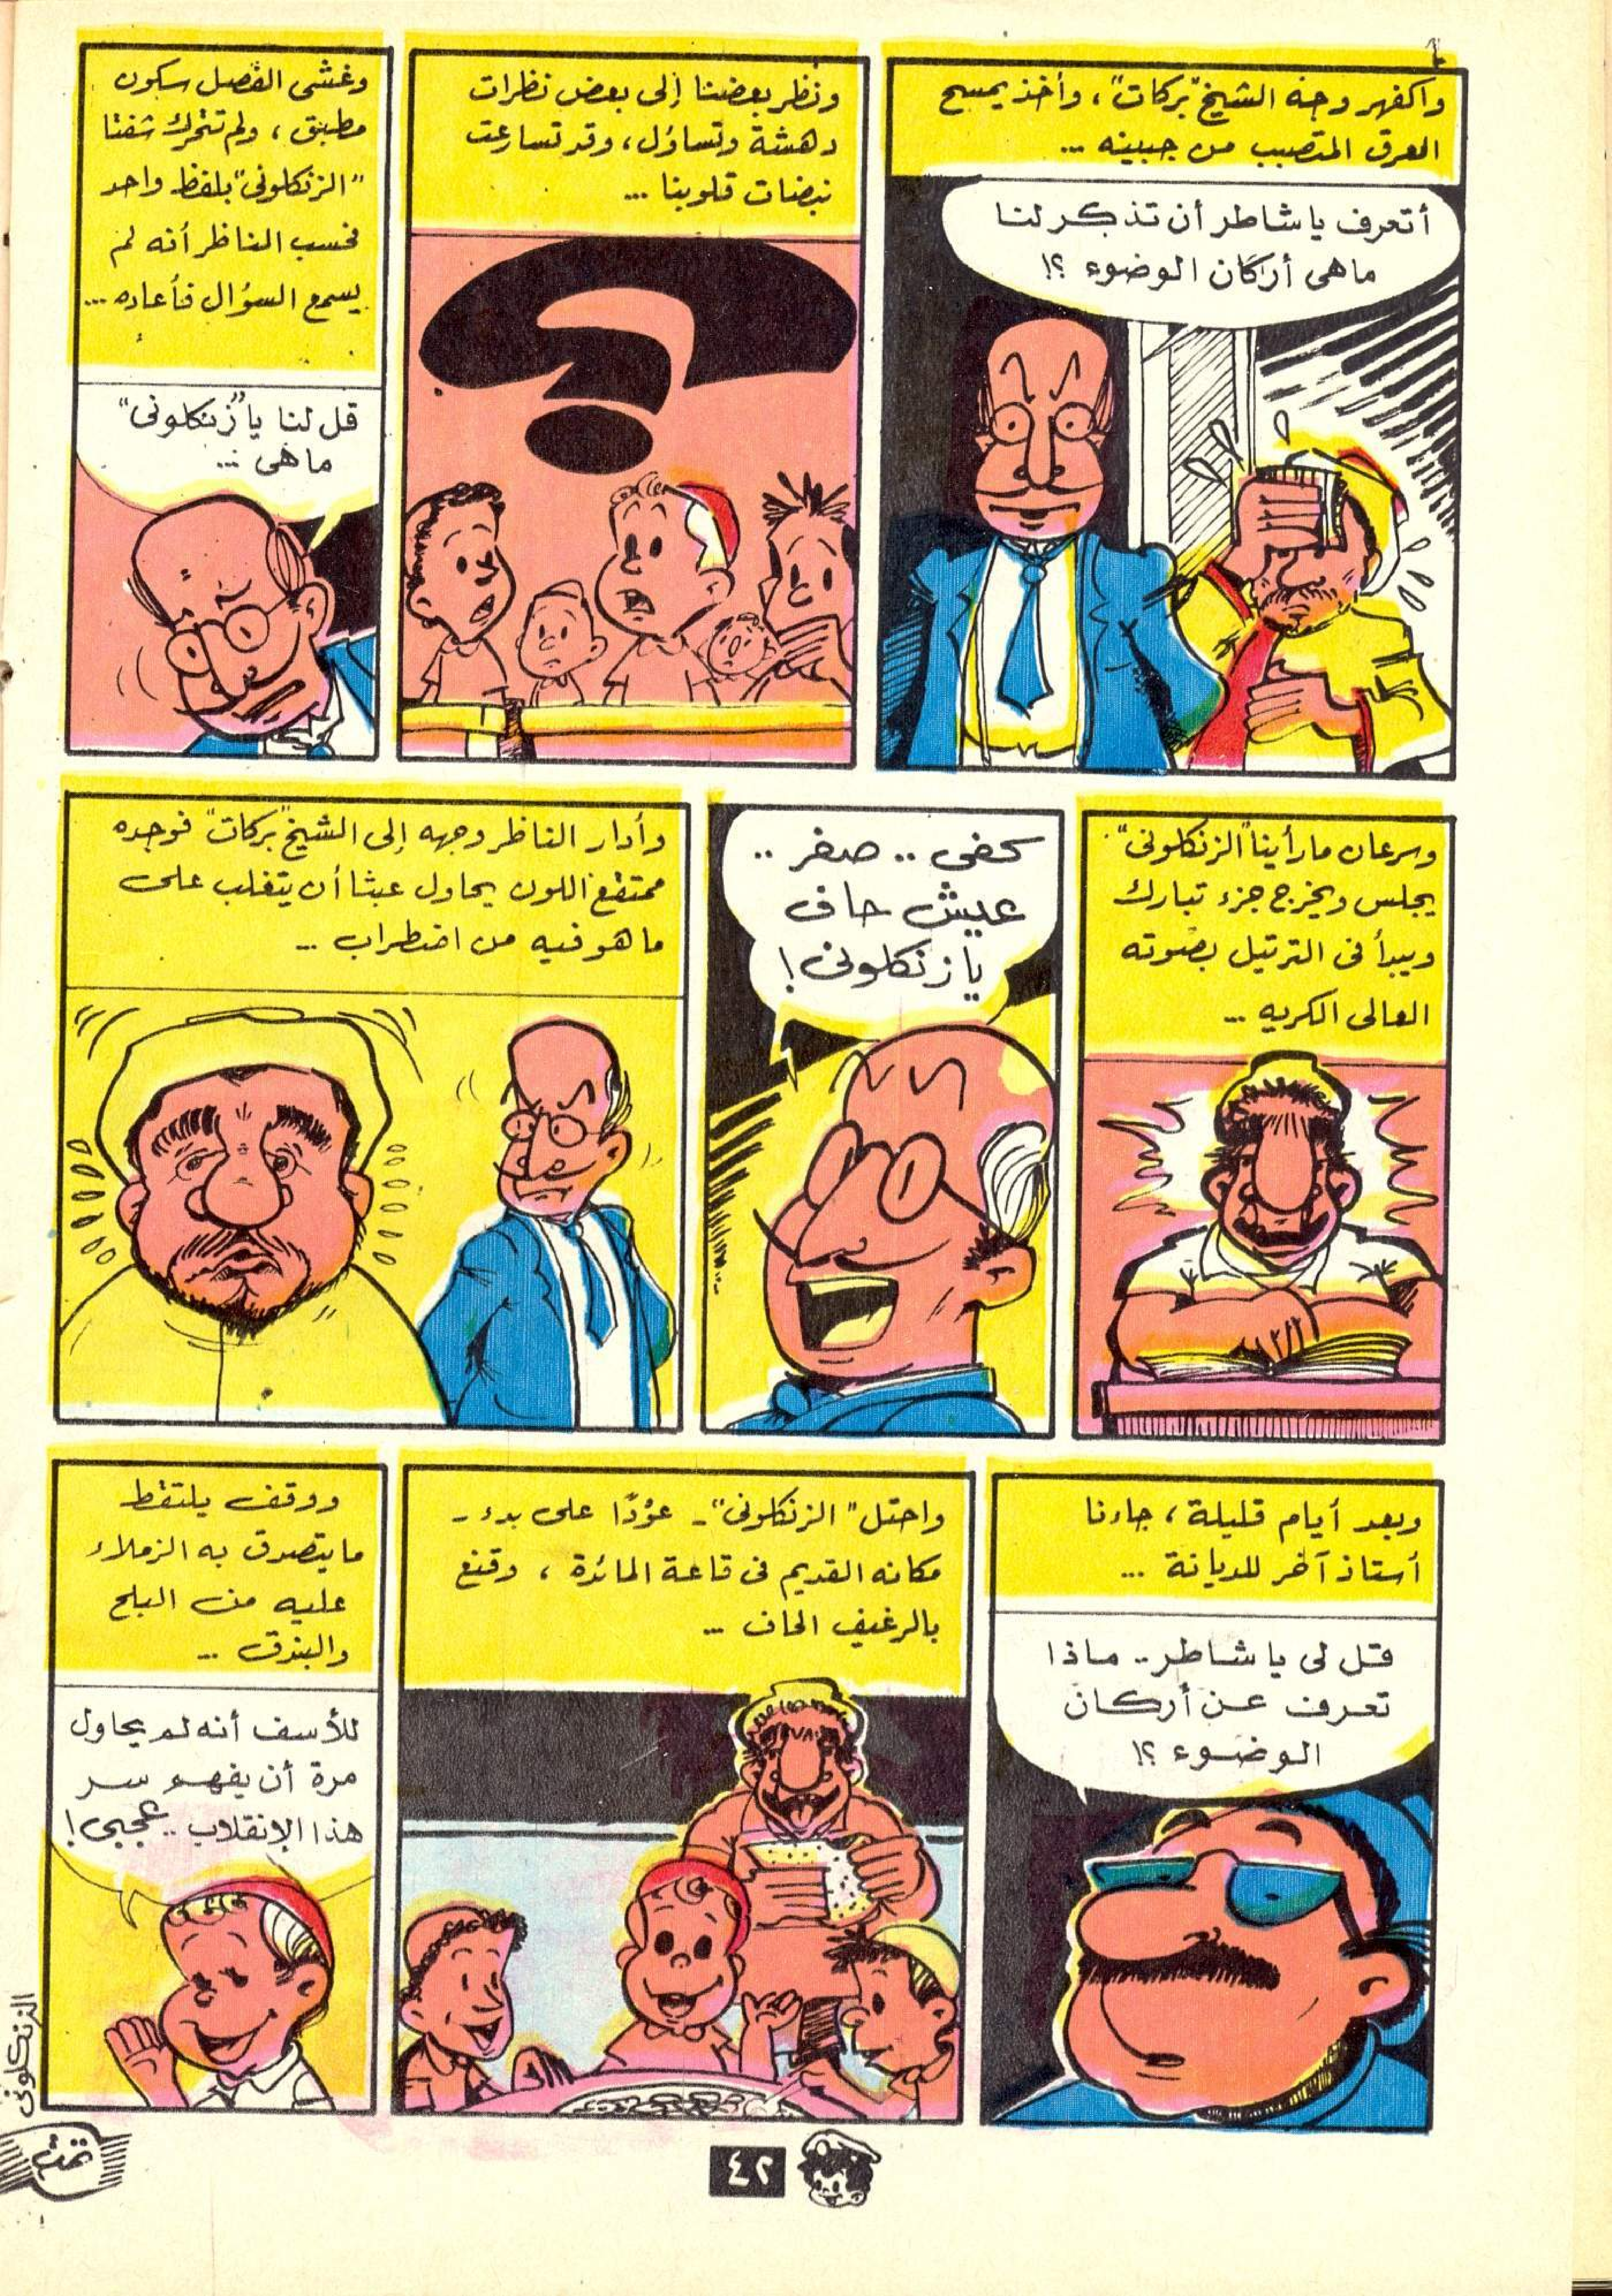 واكفهر وجه الشيخ "بركات"، وأخذ يمسح
العرق المتصبب من جبينه ...
أتعرف يا شاطر أن تذكر لنا
ما هى أركان الوضوء ؟!
ونظر بعضنا إلى بعض نظرات
دهشة وتساؤل، وقد تسارعت
نبضات قلوبنا ...
وغشى الفصل سكون
مطبق، ولم تتحرك شفتا
"الزنكلونى" بلفظ واحد
فحسب الناظر أنه لم
يسمع السؤال فأعاده ...
قل لنا يا "زنكلونى"
ما هى ...
وسرعان ما رأينا "الزنكلونى"
يجلس ويخرج جزء تبارك
ويبدأ فى الترتيل بصوته
العالى الكريه ...
كفى .. صفر ..
عيش حاف
يا زنكلونى !
وأدار الناظر وجهه إلى الشيخ "بركات" فوجده
ممتقع اللون يحاول عبثا أن يتغلب على
ما هو فيه من اضطراب ...
وبعد أيام قليلة، جاءنا
أستاذ آخر للديانة ...
قل لى يا شاطر.. ماذا
تعرف عن أركان
الوضوء ؟!
واحتل "الزنكلونى" - عوْدًا على بدء -
مكانه القديم فى قاعة المائدة ، وقنع
بالرغيف الحاف ...
ووقف يلتقط
ما يتصدق به الزملاء
عليه من البلح
والبندق ...
للأسف أنه لم يحاول
مرة أن يفهم سر
هذا الإنقلاب .. عجبى !
الزنكلونى
تمت
٤٢